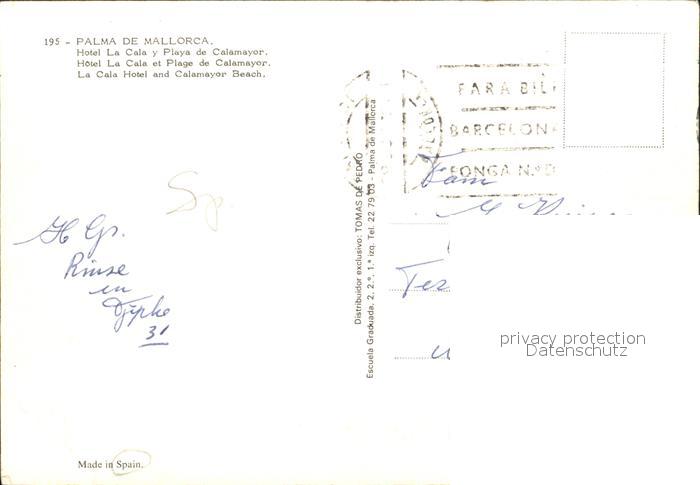 195 - PALMA DE MALLORCA.
Hotel La Cala y Playa de Calamayor.
Hôtel La Cala et Plage de Calamayor.
La Cala Hotel and Calamayor Beach.
PARA BIL
BARCELONA
PONGA N.º D
Fam
Sp.
H Gr.
Rinse
en
Djipke
31
Tes
Distribuidor exclusivo: TOMAS DE PEDRO
Escuela Graduada, 2, 2.º, 1.ª izq. Tel. 22 79 03 - Palma de Mallorca
privacy protection
Datenschutz
Made in Spain.